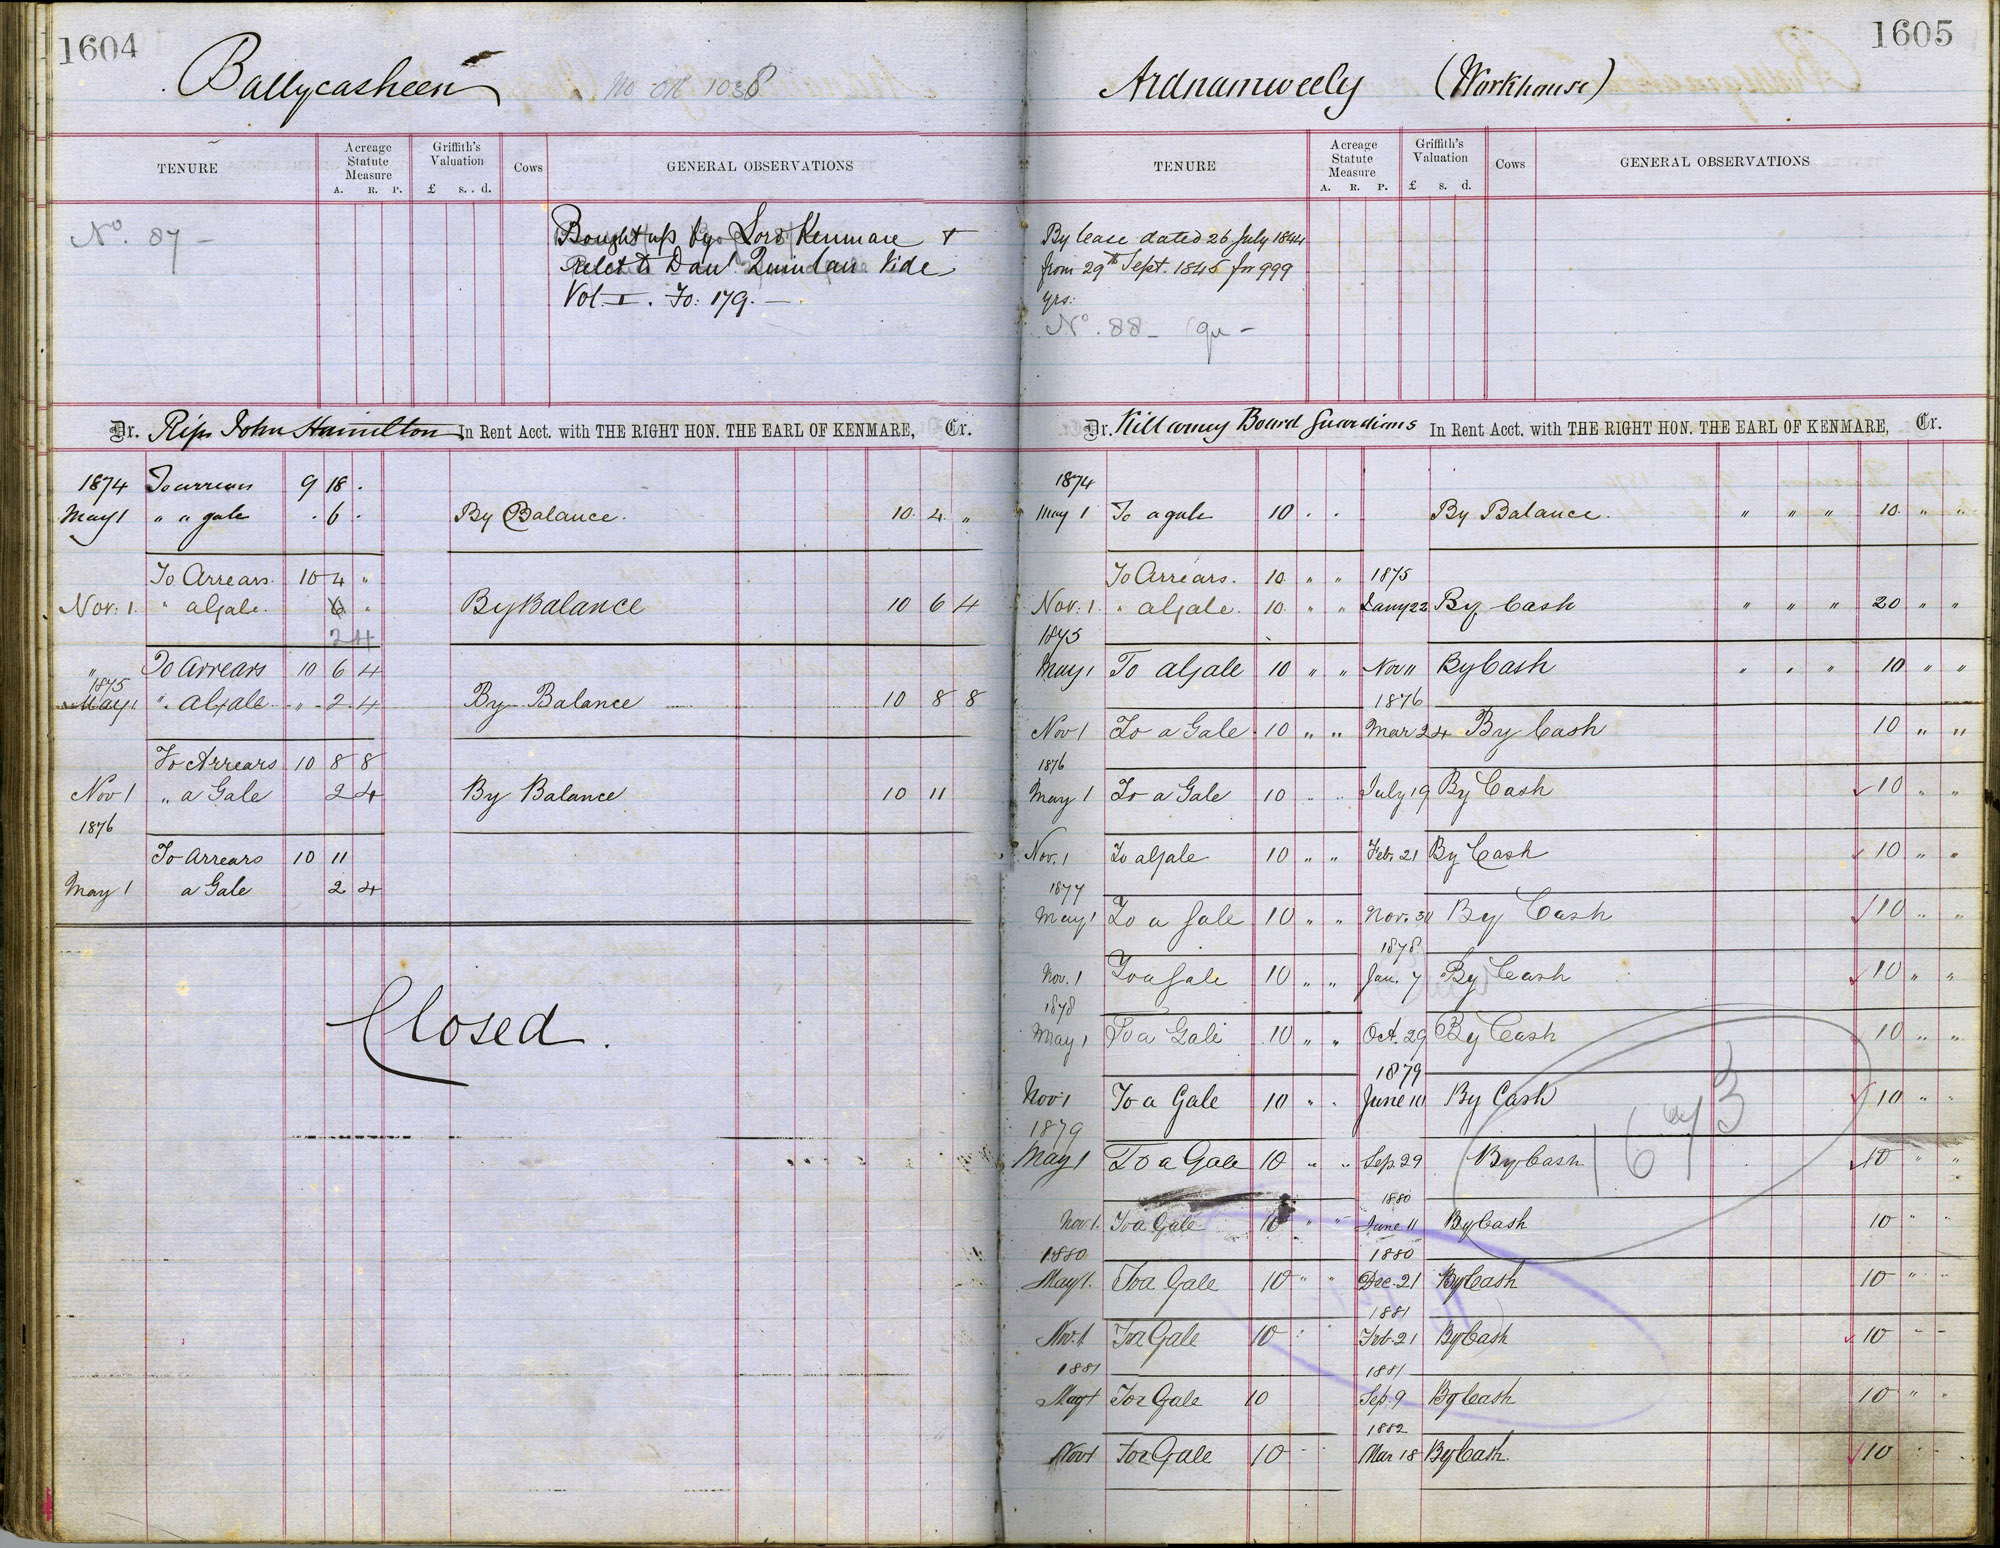 1604
Ballycasheen
No on 1038
TENURE
Acreage Statute Measure
A. R. P.
Griffith's Valuation
£ s. d.
Cows
GENERAL OBSERVATIONS
No. 87 -
Bought up by Lord Kenmare +
relet to Danl. Quinlan Vide
Vol. I. Fo: 179. -
Dr. Reps John Hamilton In Rent Acct. with THE RIGHT HON. THE EARL OF KENMARE, Cr.
1874 To arrears 9 18 .
May 1 " " gale . 6 . By Balance. 10. 4. "
To Arrears. 10 4 "
Nov: 1. " a Gale. 6 " By Balance 10 6 4
2 4
" To Arrears 10 6 4
1875
May 1 ". a Gale - " - 2 - 4 By Balance 10 8 8
To Arrears 10 8 8
Nov 1 " a Gale 2 4 By Balance 10 11
1876
To Arrears 10 11
May 1 a Gale 2 4
Closed.
1605
Ardnamweely (Workhouse)
TENURE
Acreage Statute Measure
A. R. P.
Griffith's Valuation
£ s. d.
Cows
GENERAL OBSERVATIONS
By lease dated 26 July 1844
from 29th Sept. 1845 for 999
yrs:
No. 88 - (qu -
Dr. Killarney Board Guardians In Rent Acct. with THE RIGHT HON. THE EARL OF KENMARE, Cr.
1874
May 1 To a gale 10 . . By Balance. " " " 10 " "
To Arrears. 10 " " 1875
Nov: 1. " a Gale. 10 " " Jany 22 By Cash " " " 20 " "
1875
May 1 To a Gale 10 " " Nov 11 By Cash " " " 10 " "
1876
Nov 1 To a Gale 10 " " Mar 24 By Cash 10 " "
1876
May 1 To a Gale 10 " " July 19 By Cash 10 " "
Nov. 1 To a Gale 10 " " Feb. 21 By Cash 10 " "
1877
May 1 To a Gale 10 " " Nov. 30 By Cash 10 " "
1878
Nov. 1 To a Gale 10 " " Jan. 7 By Cash 10 " "
1878
May 1 To a Gale 10 " " Oct. 29 By Cash 10 " "
1879
Nov 1 To a Gale 10 " " June 10 By Cash 10 " "
1879
May 1 To a Gale 10 " " Sep. 29 By Cash 10 " "
1880
Nov 1. To a Gale 10 " " June 11 By Cash 10 " "
1880 1880
May 1. To a Gale 10 " " Dec. 21 By Cash 10 " "
1881
Nov. 1 To a Gale 10 Feb. 21 By Cash 10 - -
1881 1881
May 1 To a Gale 10 Sep. 9 By Cash 10 " "
1882
Nov 1 To a Gale 10 Mar 18 By Cash. 10